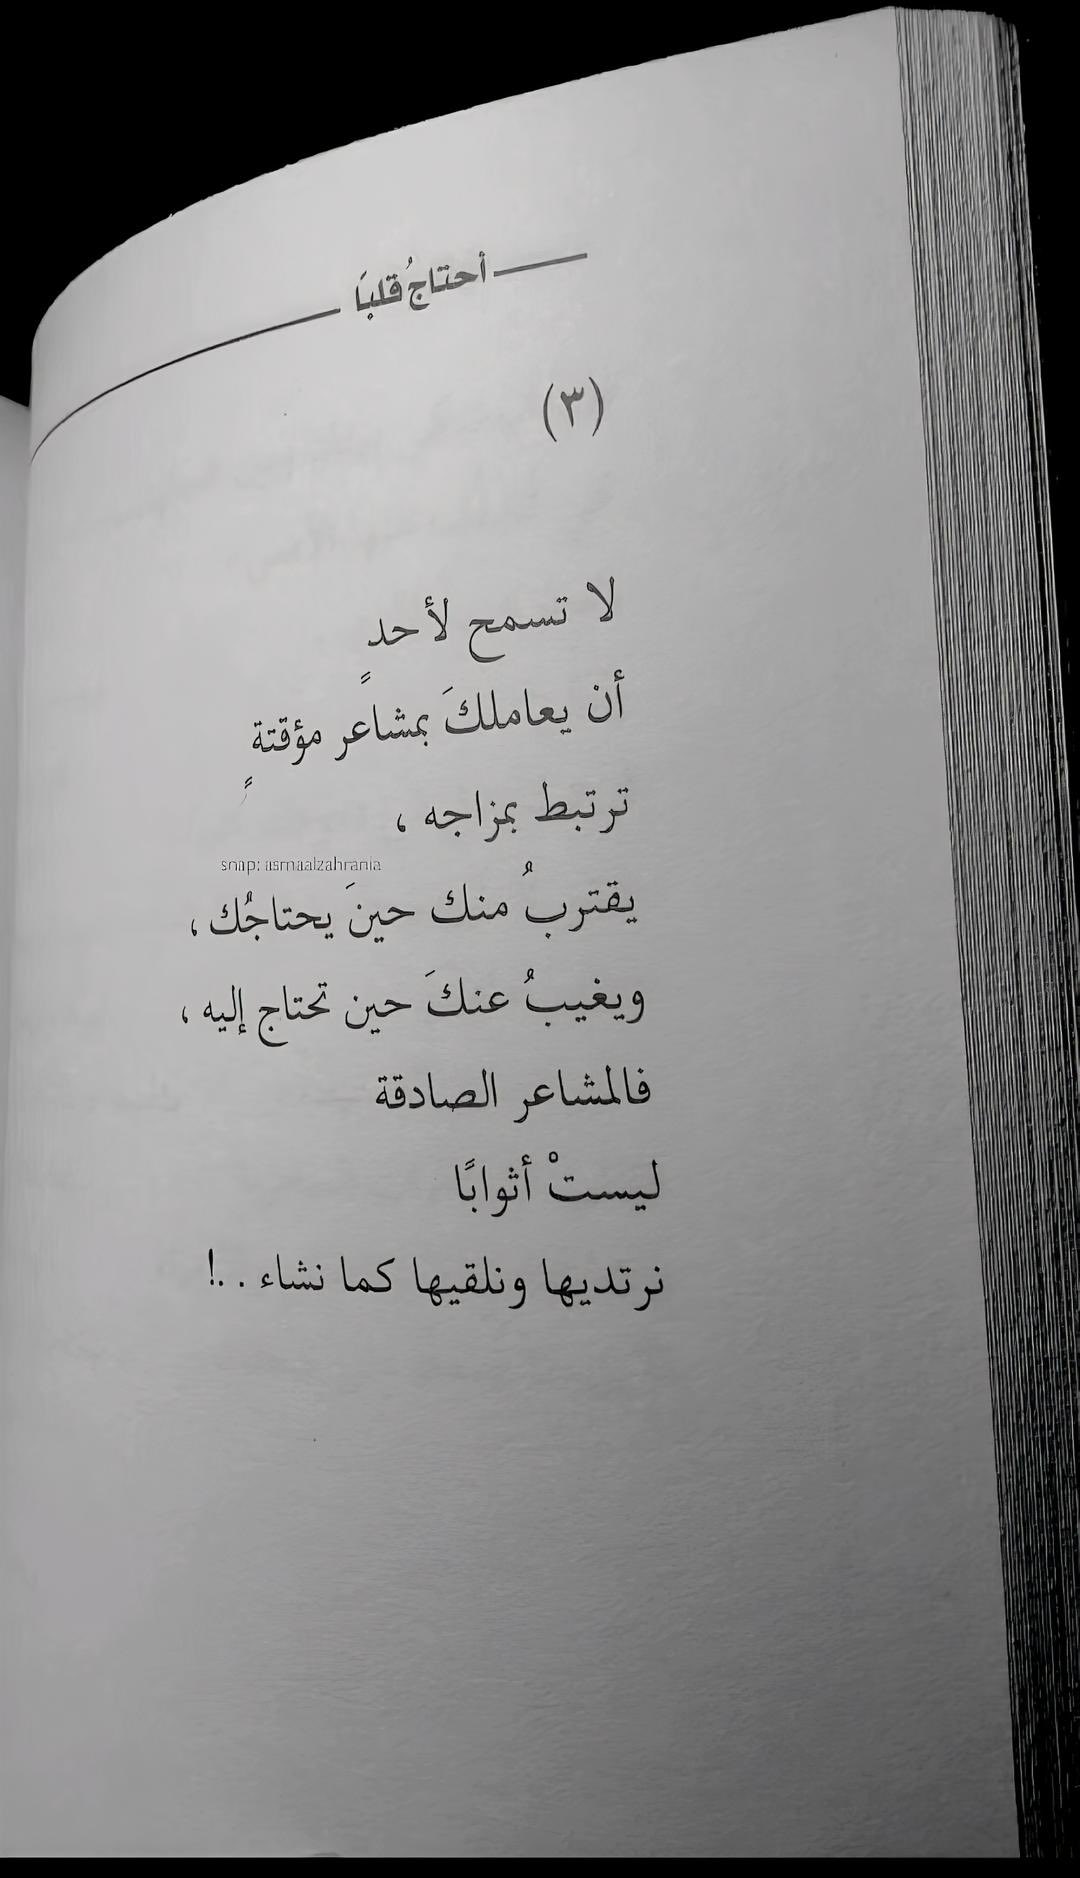 أحتاجُ قلبَا
(٣)
لا تسمح لأحدٍ
أن يعاملكَ بمشاعر مؤقتةٍ
ترتبط بمزاجه ،
snap: asmaalzahrania
يقتربُ منك حينَ يحتاجُك ،
ويغيبُ عنكَ حين تحتاج إليه ،
فالمشاعر الصادقة
ليستْ أثوابًا
نرتديها ونلقيها كما نشاء . .!